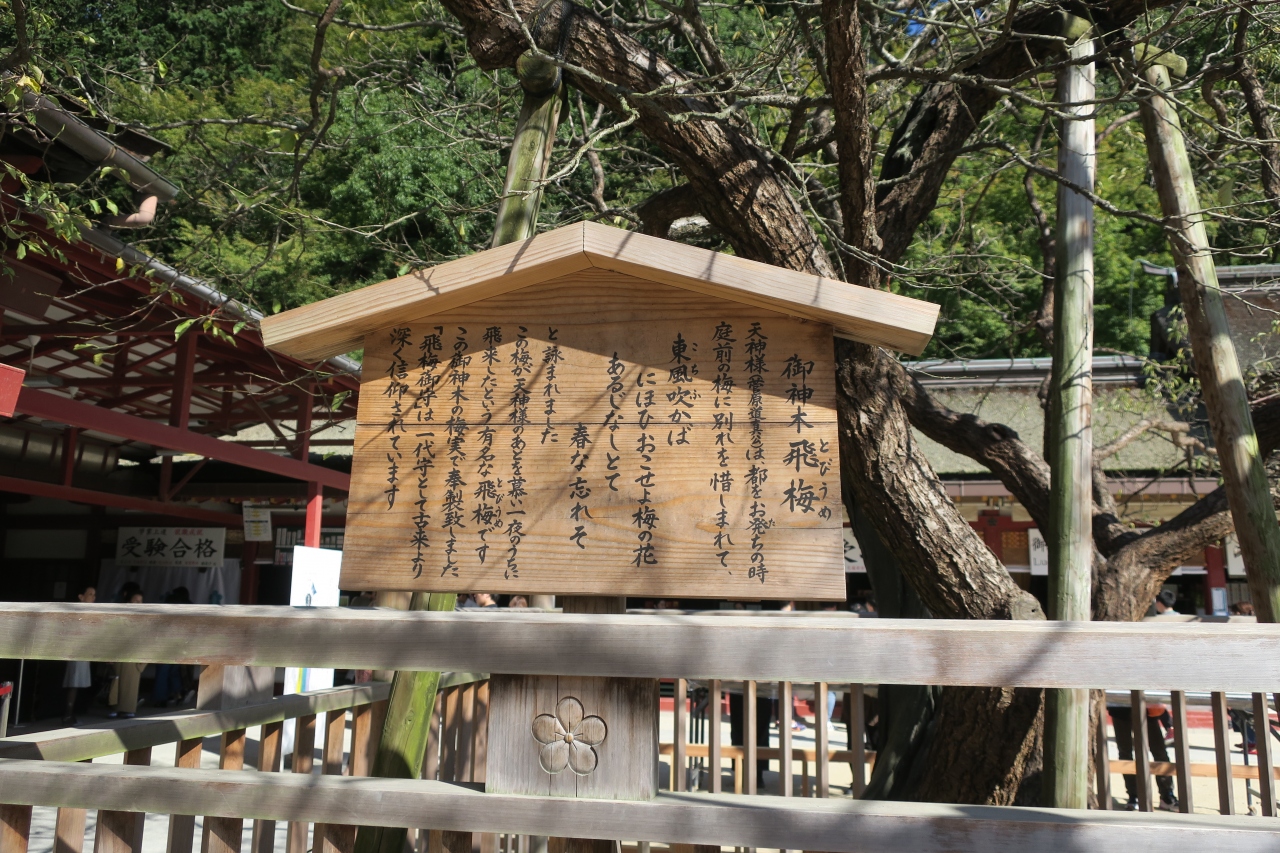 御神木 飛梅
とびうめ
天神様(菅原道真公)は都をお発ちの時
た
庭前の梅に別れを惜しまれて、
東風吹かば
こち ふ
にほひおこせよ梅の花
あるじなしとて
春な忘れそ
と詠まれました
この梅が天神様のあとを慕い一夜のうちに
飛来したという有名な飛梅です
とびうめ
この御神木の梅実で奉製致しました
「飛梅御守」は一代守として古来より
深く信仰されています
受験合格